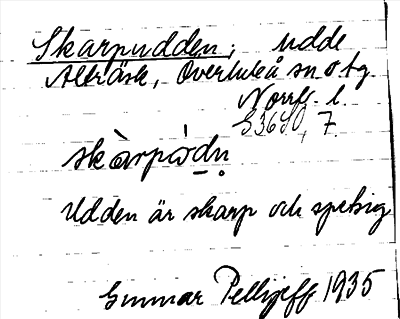 Skarpudden, udde
Alträsk, Överluleå sn o tg.
Norrb. l.
G3680, 7.
skàrpòdn
Udden är skarp och spetsig
Gunnar Pellijeff 1935